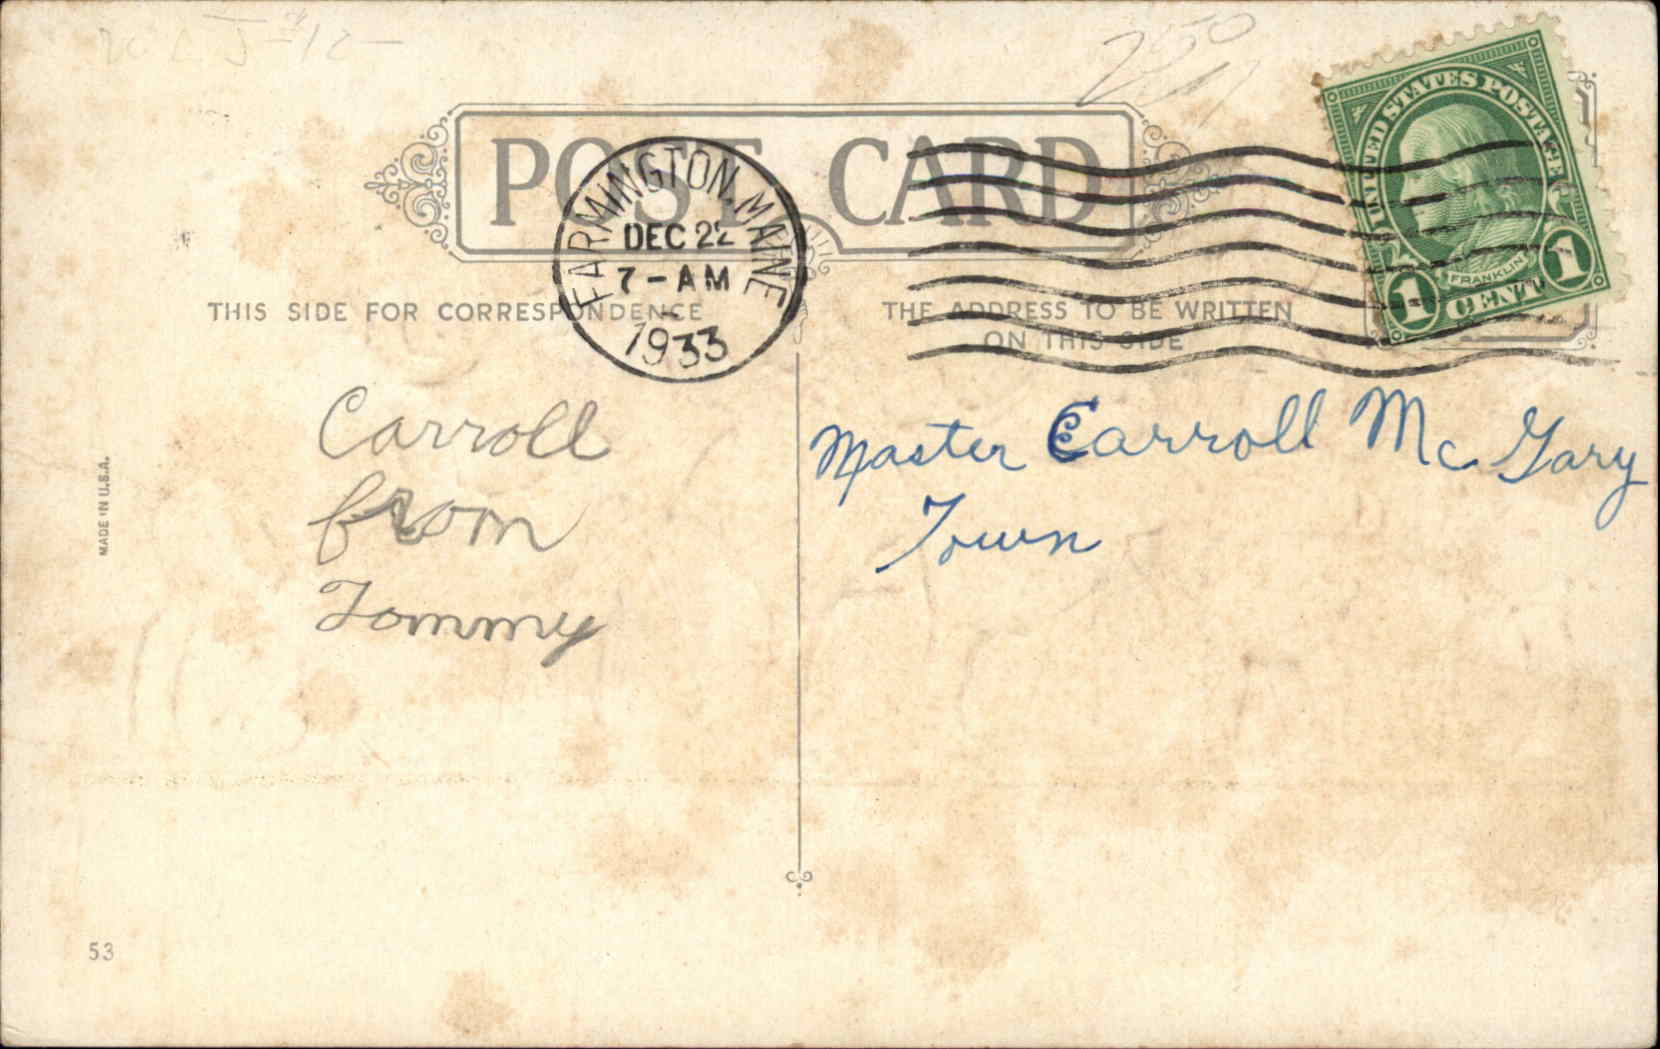 250
POST CARD
FARMINGTON, MAINE
DEC 22
7-AM
1933
UNITED STATES POSTAGE
FRANKLIN
1 CENT 1
THIS SIDE FOR CORRESPONDENCE
THE ADDRESS TO BE WRITTEN
ON THIS SIDE
Carroll
from
Tommy
Master Carroll McGary
Town
MADE IN U.S.A.
53